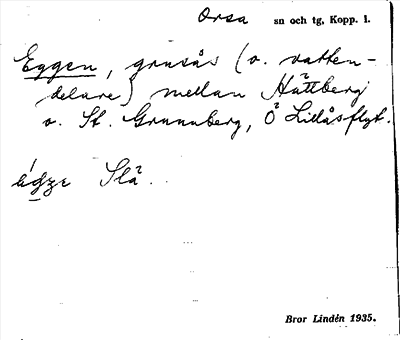 Orsa sn och tg, Kopp. l.
Eggen, grusås (o. vatten-
delare) mellan Hättberg
o. St. Grunnberg, Ö Lillåsflyt.
Slä.
Bror Lindén 1935.